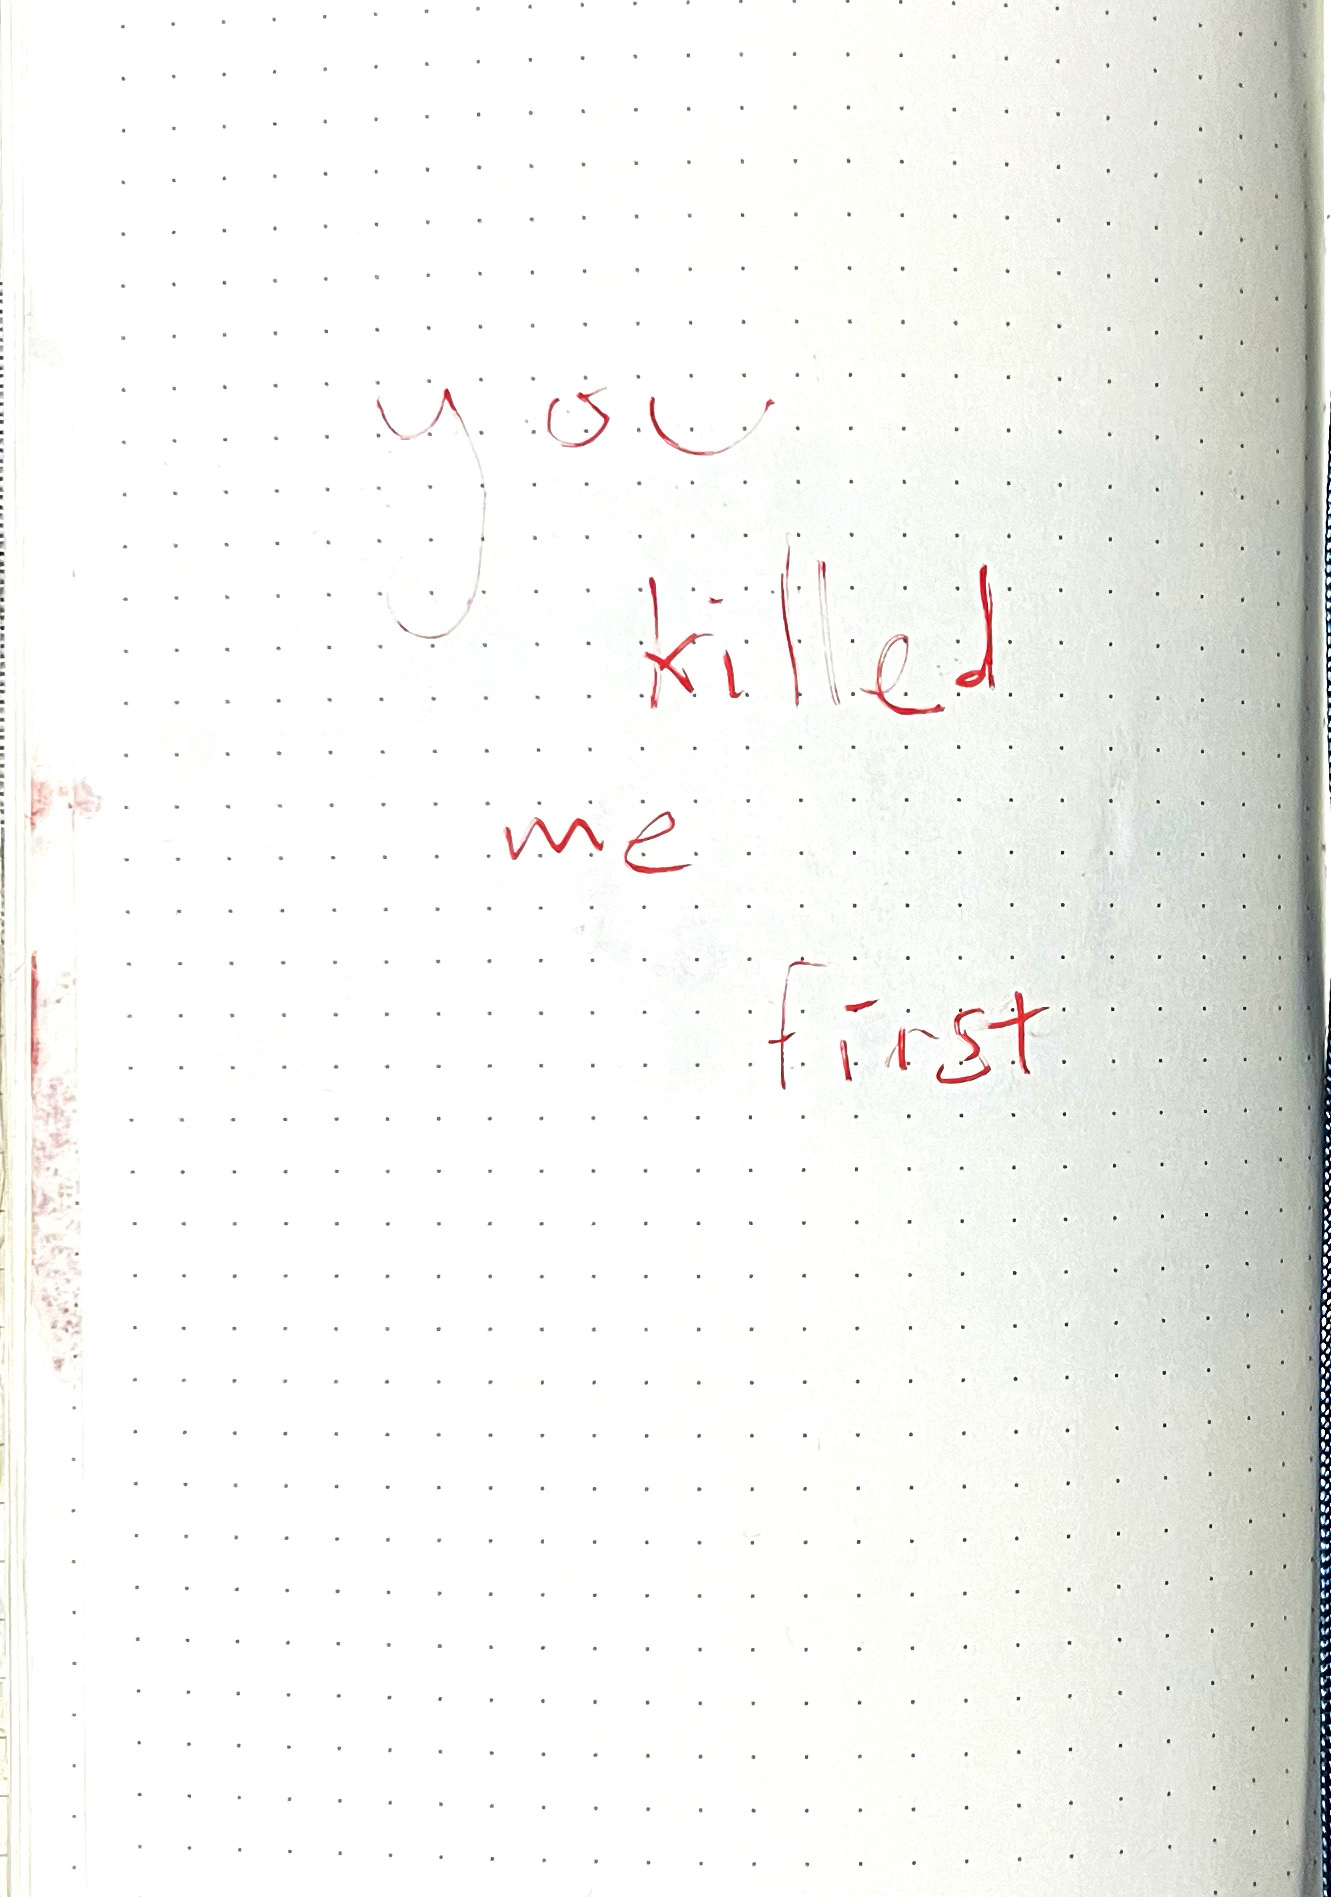 you
killed
me
first